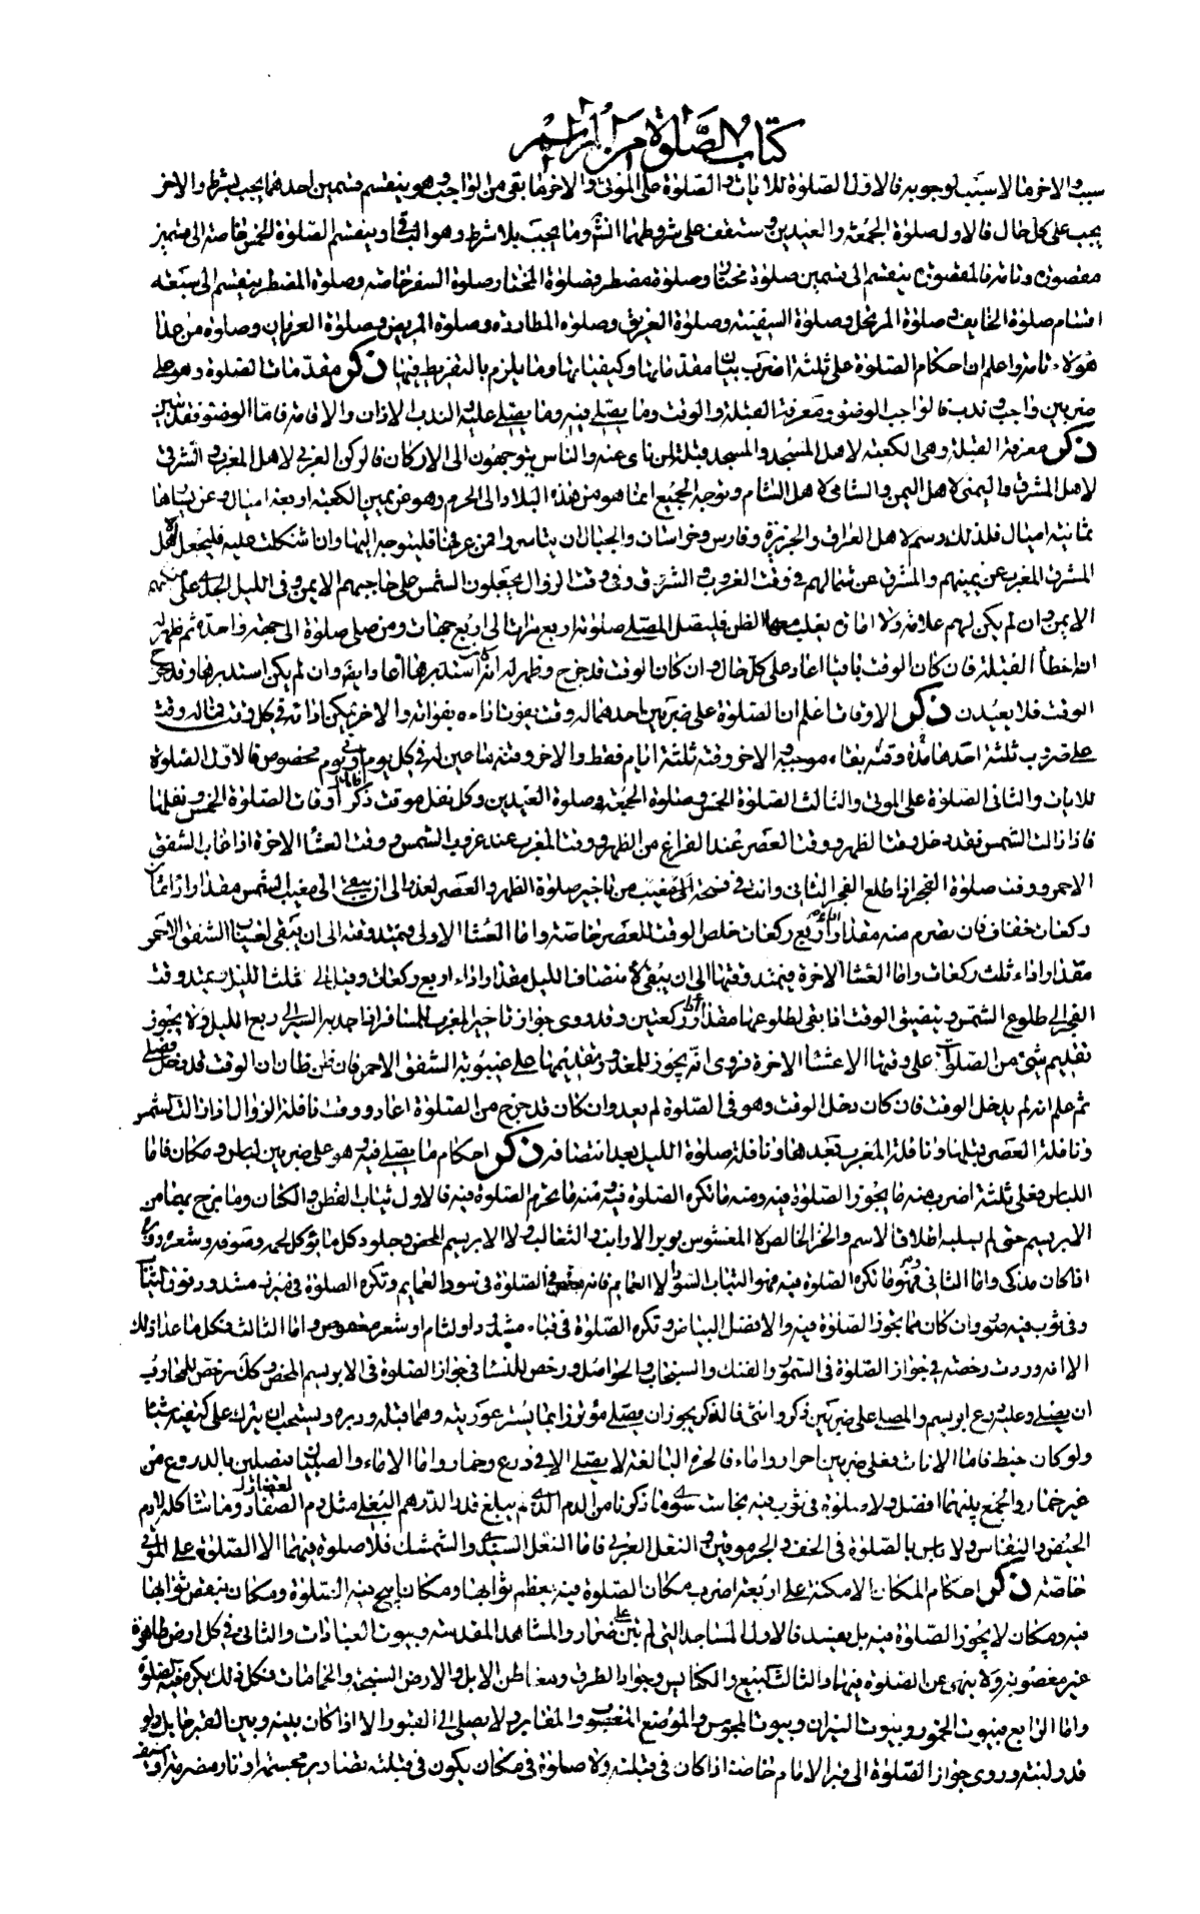 كتاب الصلوة من المراسم
سبب والاخر ما لا سبب لوجوبه فالاول الصلوة للايات والصلوة على الموتى والاخر ما بقى من الواجب وهو ينقسم قسمين احدهما يجب بشرط والاخر
يجب على كل حال فالاول صلوة الجمعة والعيدين وستقف على شروطهما انشاء وما يجب بلا شرط وهو الباقى وينقسم الصلوة الخمس خاصة الى ضربين
مقصورة وتامة فالمقصورة ينقسم الى قسمين صلوة مختار وصلوة مضطر فصلوة المختار صلوة السفر خاصة وصلوة المضطر ينقسم الى سبعة
اقسام صلوة الخايف وصلوة المرتحل وصلوة السفينة وصلوة الغريق وصلوة المطاردة وصلوة المريض وصلوة العريان وصلوة من عدا
هؤلاء تامة واعلم ان احكام الصلوة على ثلثة اضرب بيان مقدماتها وكيفياتها وما يلزم بالتفريط فيها ذكر مقدمات الصلوة وهو على
ضربين واجب وندب فالواجب الوضوء ومعرفة القبلة والوقت وما يصلى فيه وما يصلى عليه والندب الاذان والاقامة فاما الوضوء فقد بين
ذكر معرفة القبلة وهى الكعبة لاهل المسجد والمسجد قبلة لمن نأى عنه والناس يتوجهون الى الاركان فالركن الغربى لاهل المغرب والشرقى
لاهل المشرق واليمنى لاهل اليمن والشامى لاهل الشام وتوجه الجميع انما هو من هذه البلاد الى الحرم وهو عن يمين الكعبة اربعة اميال وعن يسارها
ثمانية اميال فلذلك رسم لاهل العراق والجزيرة وفارس وخراسان والجبال ان يتياسروا فمن عرفها فليتوجه اليها وان اشكلت عليه فليجعل اهل
المشرق المغرب عن يمينهم والمشرق عن شمالهم فى وقت الغروب والشرق وفى وقت الزوال يجعلون الشمس على حاجبهم الايمن وفى الليل الجدى على منكبهم
الايمن وان لم يكن لهم علامة ولا امارة يغلب معها الظن فليصل المصلى صلوته اربع مرات الى اربع جهات ومن صلى صلوة الى جهة واحدة ثم ظهر له
انه اخطأ القبلة فان كان الوقت باقيا اعاد على كل حال وان كان الوقت قد خرج وظهر له انه استدبرها اعاد ايضا وان لم يكن استدبرها وقد خرج
الوقت فلا يعيدن ذكر الاوقات اعلم ان الصلوة على ضربين احدهما له وقت يفوت اداءه بفواته والاخر يمكن اداءه فى كل وقت فما له وقت
على ضروب ثلثة احدها مدة وقته بقاء موجبه والاخر وقته ثلثة ايام فقط والاخر وقته ما عين له فى كل يوم او فى يوم مخصوص فالاول الصلوة
للايات والثانى الصلوة على الموتى والثالث الصلوة الخمس وصلوة الجمعة وصلوة العيدين وكل نفل موقت ذكر اوقات الصلوة الخمس ونفلها
فاذا زالت الشمس فقد دخل وقت الظهر ووقت العصر عند الفراغ من الظهر ووقت المغرب عند غروب الشمس ووقت العشاء الاخرة اذا غاب الشفق
الاحمر ووقت صلوة الفجر اذا طلع الفجر الثانى وانت فى فسحة من تاخير صلوة الظهر والعصر لعذر الى ان يبقى الى مغيب الشمس مقدار اداء ثمان
ركعات خفاف فان تصرم منه مقدار اربع ركعات خلص الوقت للعصر خاصة واما العشاء الاولى فيمتد وقته الى ان يبقى لغياب الشفق الاحمر
مقدار اداء ثلث ركعات واما العشاء الاخرة فيمتد وقتها الى ان يبقى لانتصاف الليل مقدار اداء اربع ركعات وقيل الى ثلث الليل ويمتد وقت
الفجر الى طلوع الشمس ويتضيق الوقت اذا بقى لطلوعها مقدار ركعتين وقد روى جواز تاخير المغرب للمسافر اذا جد به السير الى ربع الليل ولا يجوز
تقديم شئ من الصلوات على وقتها الا عشاء الاخرة فروى انه يجوز للمعذور تقديمها على غيبوبة الشفق الاحمر فان ظن ظان ان الوقت قد دخل فصلى
ثم علم انه لم يدخل الوقت فان كان دخل الوقت وهو فى الصلوة لم يعد وان كان قد خرج من الصلوة اعاد ووقت نافلة الزوال اذا زالت الشمس
ونافلة العصر قبلها ونافلة المغرب بعدها ونافلة صلوة الليل بعد انتصافه ذكر احكام ما يصلى فيه وهو على ضربين لباس ومكان فاما
اللباس فعلى ثلثة اضرب منه ما يجوز الصلوة فيه ومنه ما تكره الصلوة فيه ومنه ما يحرم الصلوة فيه فالاول ثياب القطن والكتان وما يمزج بهما من
الابريسم حتى لم يسلبه اطلاق الاسم والخز الخالص لا المغشوش بوبر الارانب والثعالب ولا الابريسم المحض وجلود كل ما يؤكل لحمه وصوفه وشعره ووبره
اذا كان مذكى واما الثانى وما تكره الصلوة فيه فهو الثياب السود الا العمايم فانه الصلوة فى سود العمايم وتكره الصلوة فى مئزر مشدود فوق الثياب
وفى ثوب فيه صور وان كان مما يجوز الصلوة فيه والافضل البياض وتكره الصلوة فى قباء مشدود او لثام او شعر معقوص واما الثالث فكل ما عدا ذلك
الا انه وردت رخصة فى جواز الصلوة فى السمور والفنك والسنجاب والحواصل ورخص للنساء فى جواز الصلوة فى الابريسم المحض وكذلك رخص للمحارب
ان يصلى وعليه درع ابريسم والمصلى على ضربين ذكر وانثى فالذكر يجوز ان يصلى مؤتزرا بما يستر عورتيه وهما قبله ودبره ويستحب ان يترك على كتفيه شيئا
ولو كان خيط فاما الاناث فعلى ضربين احرار واماء فالحرة البالغة لا يصلى الا فى درع وخمار واما الاماء والصبيات فيصلين بالدروع من
غير خمار والجمع بينهما افضل ولا صلوة فى ثوب فيه نجاسة سوى ما ذكرنا من الدم الذى لم يبلغ قدر الدرهم البغلى مثل دم الفصاد وما شاكله لا دم
الحيض والنفاس ولا باس بالصلوة فى الخف والجرموقين والنعل العربى فاما النعل السندى والشمشك فلا صلوة فيهما الا الصلوة على الموتى
خاصة ذكر احكام المكان الامكنة على اربعة اضرب مكان الصلوة فيه يعظم ثوابها ومكان ابيح فيه الصلوة ومكان ينقص ثوابها
فيه ومكان لا يجوز الصلوة فيه بل يعيد فالاول المساجد التى لم تبن على ضرار والمشاهد المقدسة وبيوت العبادات والثانى فى كل ارض طاهرة
غير مغصوبة ولا نهى عن الصلوة فيها والثالث البيع والكنايس وجواد الطرق ومعاطن الابل والارض السبخة والحمامات فكل ذلك يكره فيه الصلوة
واما الرابع فبيوت الخمور وبيوت النيران وبيوت المجوس والموضع المغصوب والمقابر ولا يصلى الى القبور الا اذا كان بينه وبين القبر حايل ولو
قدر لبنة وروى جواز الصلوة الى قبر الامام خاصة اذا كان فى قبلته ولا صلوة فى مكان يكون فى قبلته تصاوير مجسمة او نار مضرمة او سيف